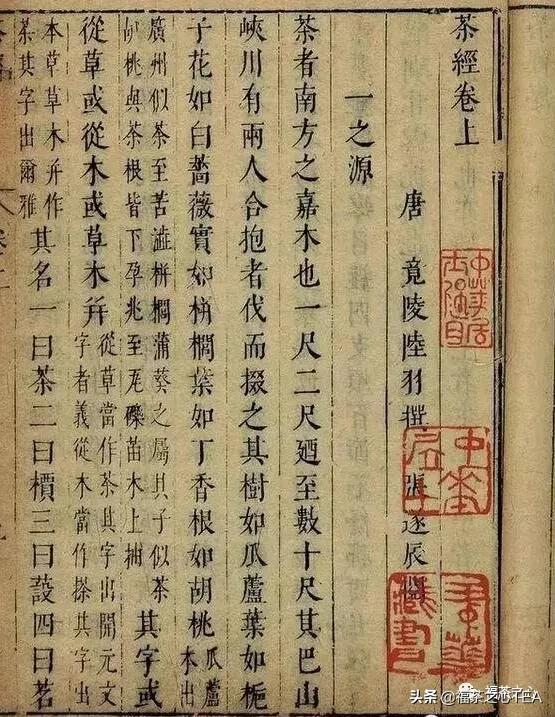 茶經卷上
唐 竟陵陸羽撰 張遂辰閱
一之源
茶者南方之嘉木也一尺二尺廼至數十尺其巴山
峽川有兩人合抱者伐而掇之其樹如瓜蘆葉如梔
子花如白薔薇實如栟櫚葉如丁香根如胡桃瓜蘆木出
廣州似茶至苦澁栟櫚蒲葵之屬其子似茶
胡桃與茶根皆下孕兆至瓦礫苗木上抽
其字或
從草或從木或草木并
從草當作茶其字出開元文
字者義從木當作搽其字出
本草草木并作
荼其字出爾雅
其名一曰茶二曰檟三曰蔎四曰茗
中華居士過目
中華居士
藏書
头条 @福茶之心TEA